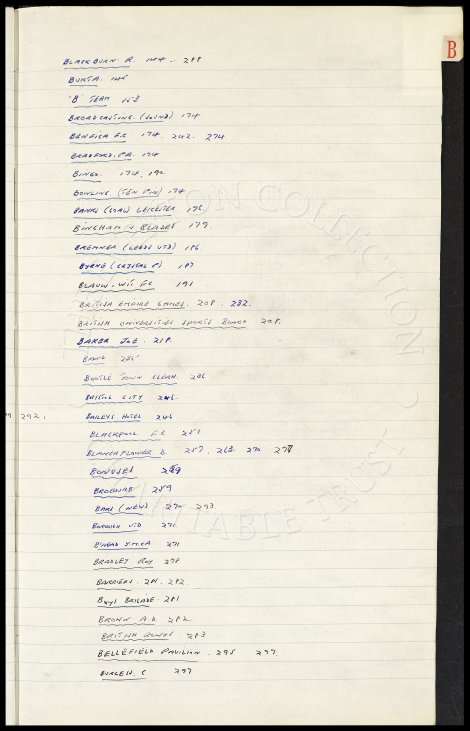 B
BLACKBURN. R. 144. 288
BURTA. 145
'B' TEAM 153
BROADCASTING. (SOUND) 174
BENFICA F.C 174, 242. 274
BRADFORD. P.A. 174
BINGO. 174, 190.
BOWLING. (TEN. PIN) 174
BANKS (GOAL) LEICESTER 176.
BINGHAM'S BLADES 179
BREMNER (LEEDS UTD) 186.
BYRNE (CRYSTAL P) 187
F.C 191
BRITISH EMPIRE GAMES. 208. 232.
BRITISH UNIVERSITIES SPORTS BOARD 208.
BAKER JOE. 218.
BAND 235
BOOTLE TOWN CLERK. 236
BRISTOL CITY 246.
292. BAILEYS HOTEL 246
BLACKPOOL F.C 251
BLANCHFLOWER. D. 257. 263. 270. 278
BONUSES 259
BROCHURE 259
BARS (NEW) 270 293.
BOROUGH UTD 271
B'HEAD YMCA 271
BRADLEY ROY 278
BARRIERS. 281. 282.
BOYS BRIGADE. 281
BROWN A.D. 282
BRITISH 283
BELLEFIELD PAVILION. 295 297.
BURGESS, C 297
COLLECTION
CHARITABLE TRUST